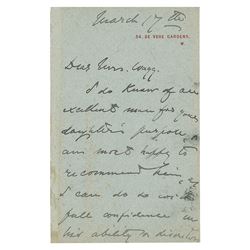 March 17th
34, DE VERE GARDENS,
W.
Dear Mrs.
I do know of an
excellent man for your
daughter's purpose &
am most happy to
recommend him.
I can do so with
full confidence in
his ability &